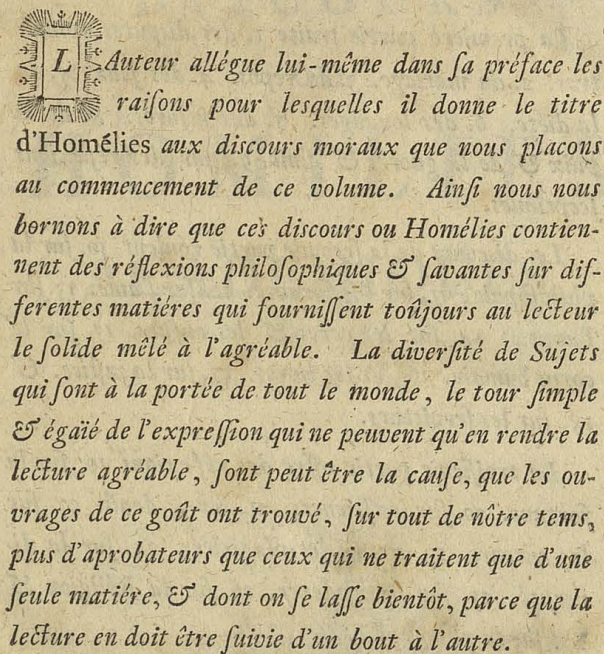 L'Auteur allégue lui-même dans ſa préface les
raiſons pour lesquelles il donne le titre
d'Homélies aux discours moraux que nous placons
au commencement de ce volume. Ainſi nous nous
bornons à dire que ces discours ou Homélies contien-
nent des réflexions philoſophiques & ſavantes ſur dif-
ferentes matiéres qui fourniſſent toûjours au lecteur
le ſolide mêlé à l'agréable. La diverſité de Sujets
qui ſont à la portée de tout le monde, le tour ſimple
& égaïé de l'expreſſion qui ne peuvent qu'en rendre la
lecture agréable, ſont peut être la cauſe, que les ou-
vrages de ce goût ont trouvé, ſur tout de nôtre tems,
plus d'aprobateurs que ceux qui ne traitent que d'une
ſeule matiére, & dont on ſe laſſe bientôt, parce que la
lecture en doit être ſuivie d'un bout à l'autre.